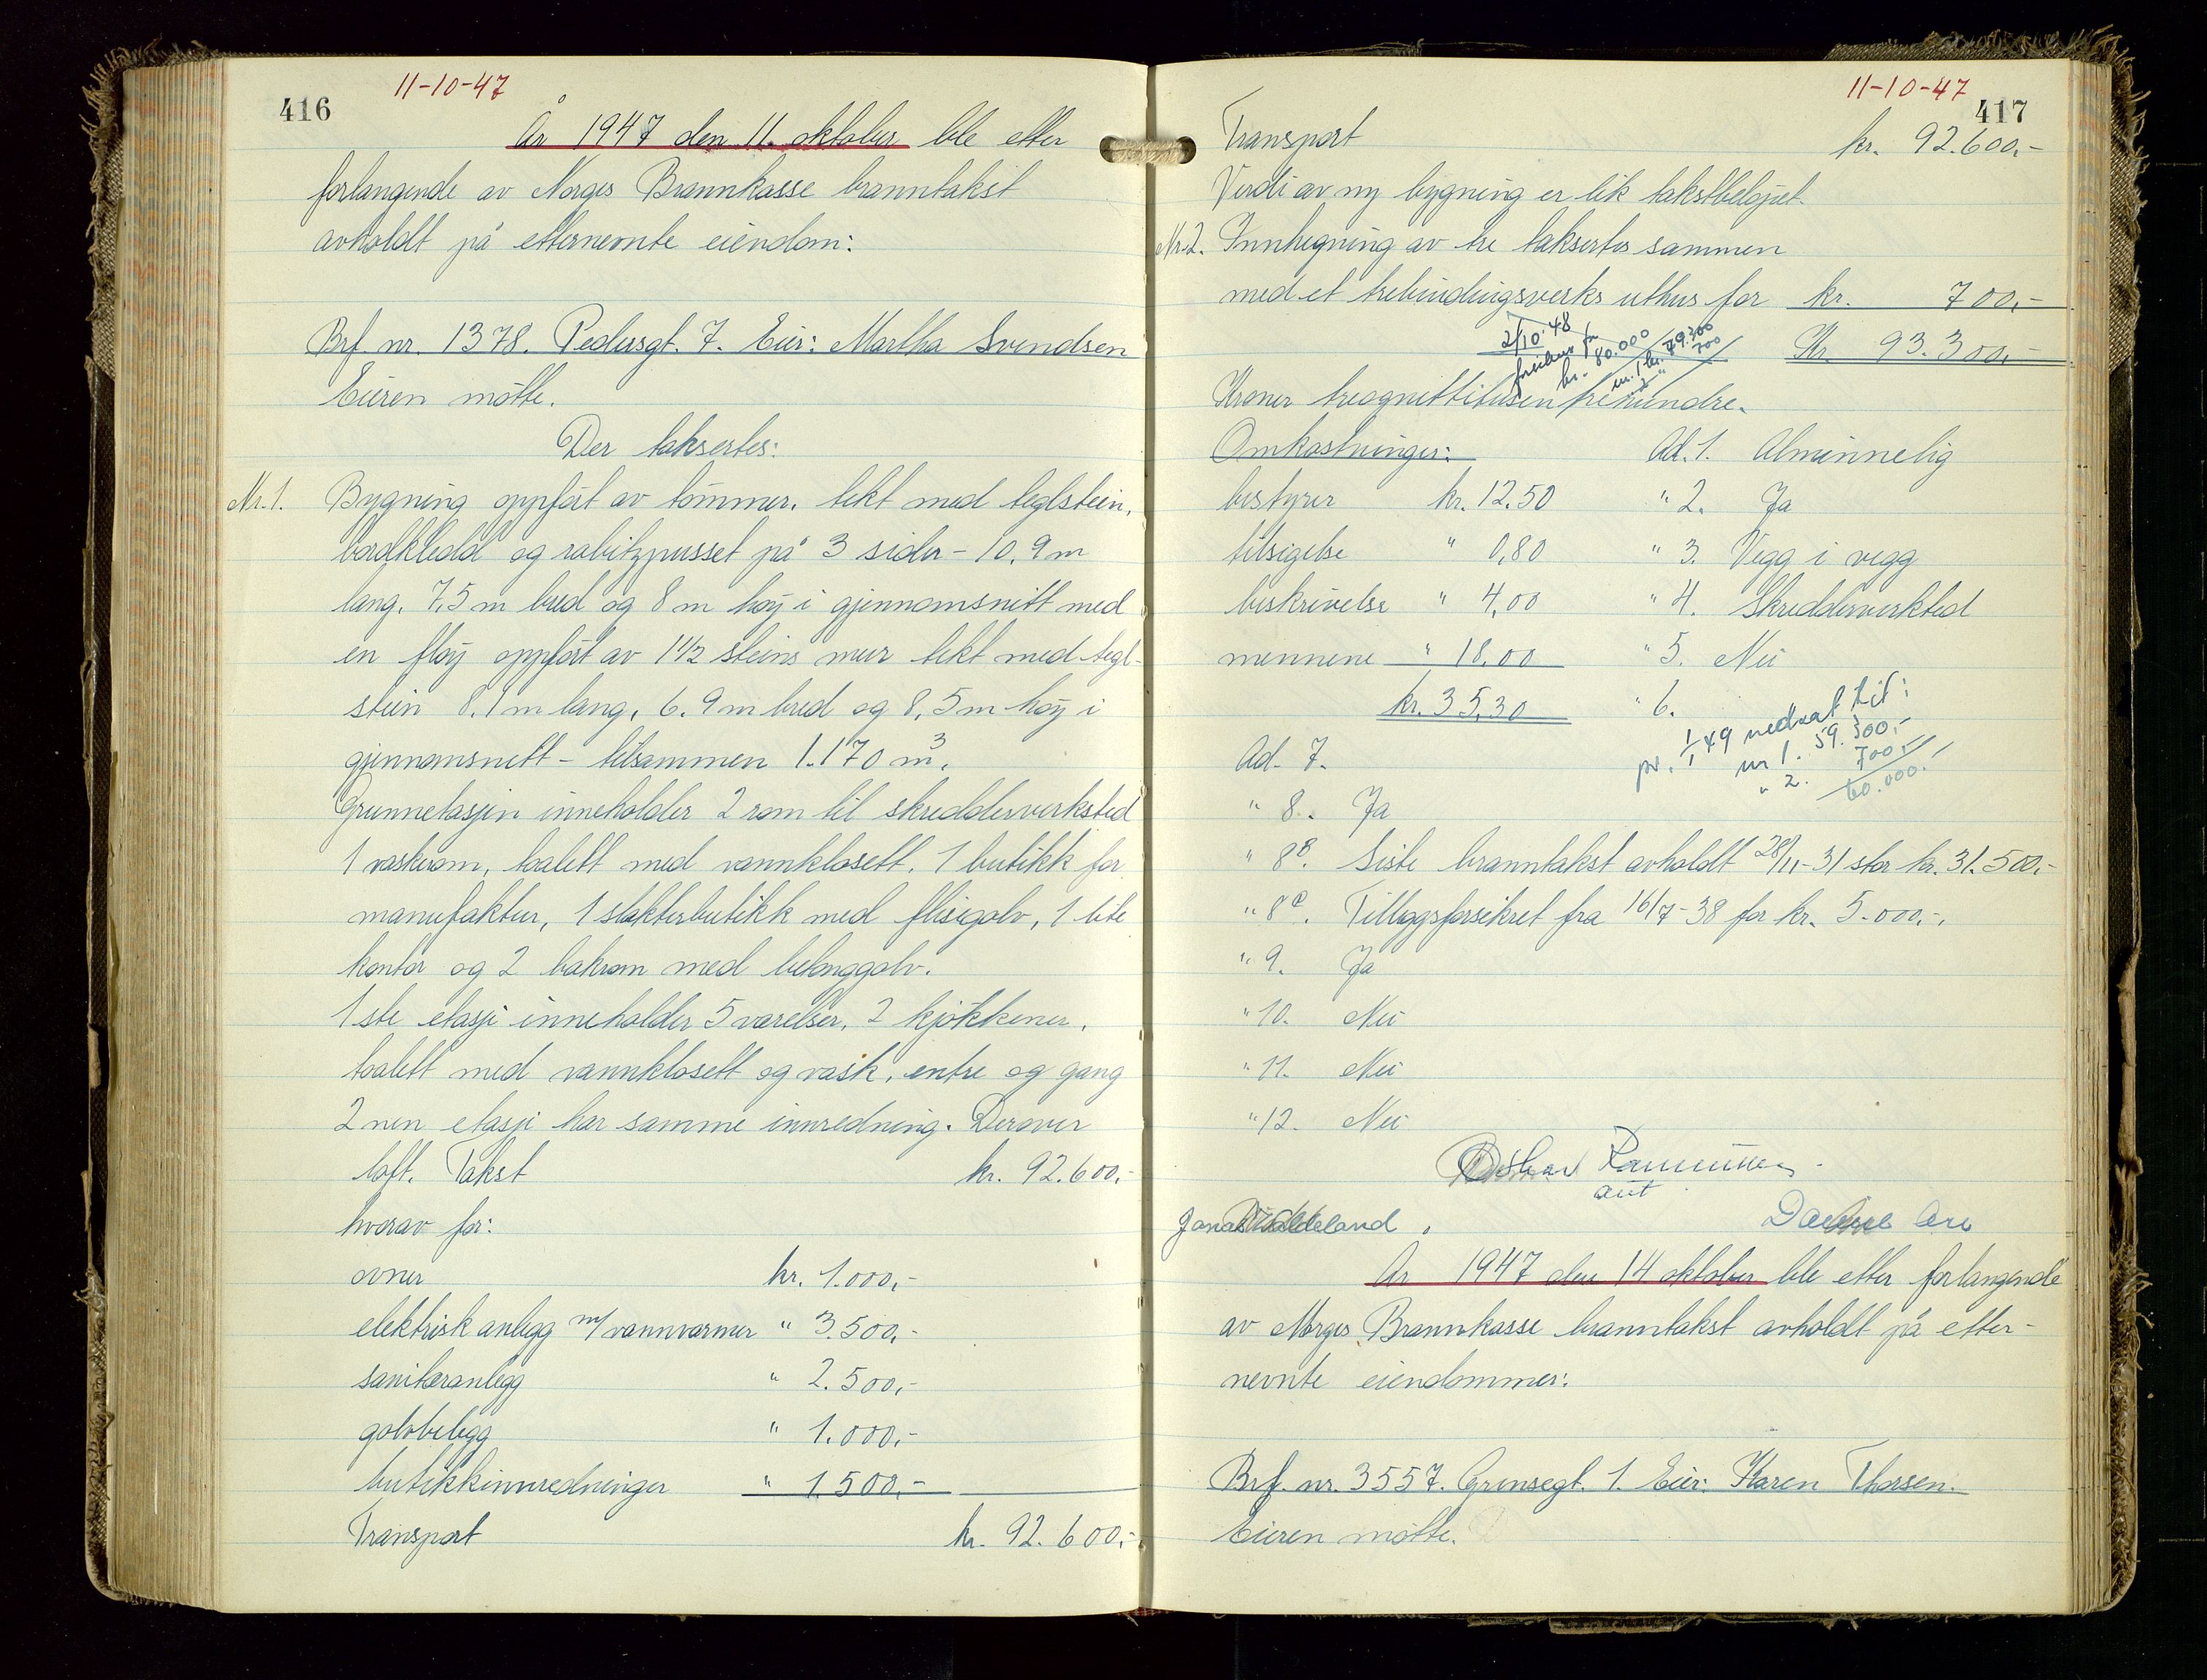 416
11-10-47
År 1947 den 11. oktober ble etter
forlangende av Norges Brannkasse branntakst
avholdt på etternevnte eiendom:
Brf nr. 1378. Pedersgt. 7. Eier: Martha Svendsen
Eieren møtte.
Der taksertes:
Nr. 1. Bygning oppført av tømmer, tekt med teglstein,
bordkledd og rabitzpusset på 3 sider - 10,9 m
lang, 7,5 m bred og 8 m høy i gjennomsnitt med
en fløy oppført av 1 1/2 steins mur tekt med tegl-
stein 8,1 m lang, 6,9 m bred og 8,5 m høy i
gjennomsnitt - tilsammen 1.170 m³.
Grunnetasjen inneholder 2 rom til skredderverksted
1 vaskerom, toalett med vannklosett, 1 butikk for
manufaktur, 1 slakterbutikk med flisegolv, 1 lite
kontor og 2 bakrom med betonggolv.
1ste etasje inneholder 5 værelser, 2 kjøkkener,
toalett med vannklosett og vask, entre og gang
2nen etasje har samme innredning. Derover
loft. Takst kr. 92.600,-
hvorav for:
ovner kr. 1.000,-
elektrisk anlegg m/ vannvarmer " 3.500,-
sanitæranlegg " 2.500,-
golvbelegg " 1.000,-
butikkinnredninger " 1500,-
Transport kr. 92.600,-
11-10-47
417
Transport kr. 92.600,-
Verdi av ny bygning er lik takstbeløpet.
Nr. 2. Innhegning av tre taksertes sammen
med et trebindingsverks uthus for kr. 700,-
Kr. 93.300,-
2/10-48
kr. 80.000
nr. 1 kr. 79.300
2 " 700
Kroner treognittitusen trehundre.
Omkostninger: Ad. 1. Alminnelig
bestyrer kr. 12.50 " 2. Ja
tilsigelse " 0,80 " 3. Vegg i vegg
beskrivelse " 4,00 " 4. Skredderverksted
mennene " 18,00 " 5. Nei
kr. 35,30 " 6.
pr. 1/1 49 nedsat til:
nr 1. 59.300,-
" 2. 700,-
60.000,-
Ad. 7.
" 8. Ja
" 8B. Siste branntakst avholdt 28/11-31 stor kr. 31.500,-
" 8C. Tilleggsforsikret fra 16/7-38 for kr. 5.000,-.
" 9. Ja
" 10. Nei
" 11. Nei
" 12. Nei
Oskar Rasmussen
aut
Jonas
År 1947 den 14 oktober ble etter forlangende
av Norges Brannkasse branntakst avholdt på etter-
nevnte eiendommer:
Brf. nr. 3557. Grensegt. 1. Eier: Karen Thorsen.
Eieren møtte.